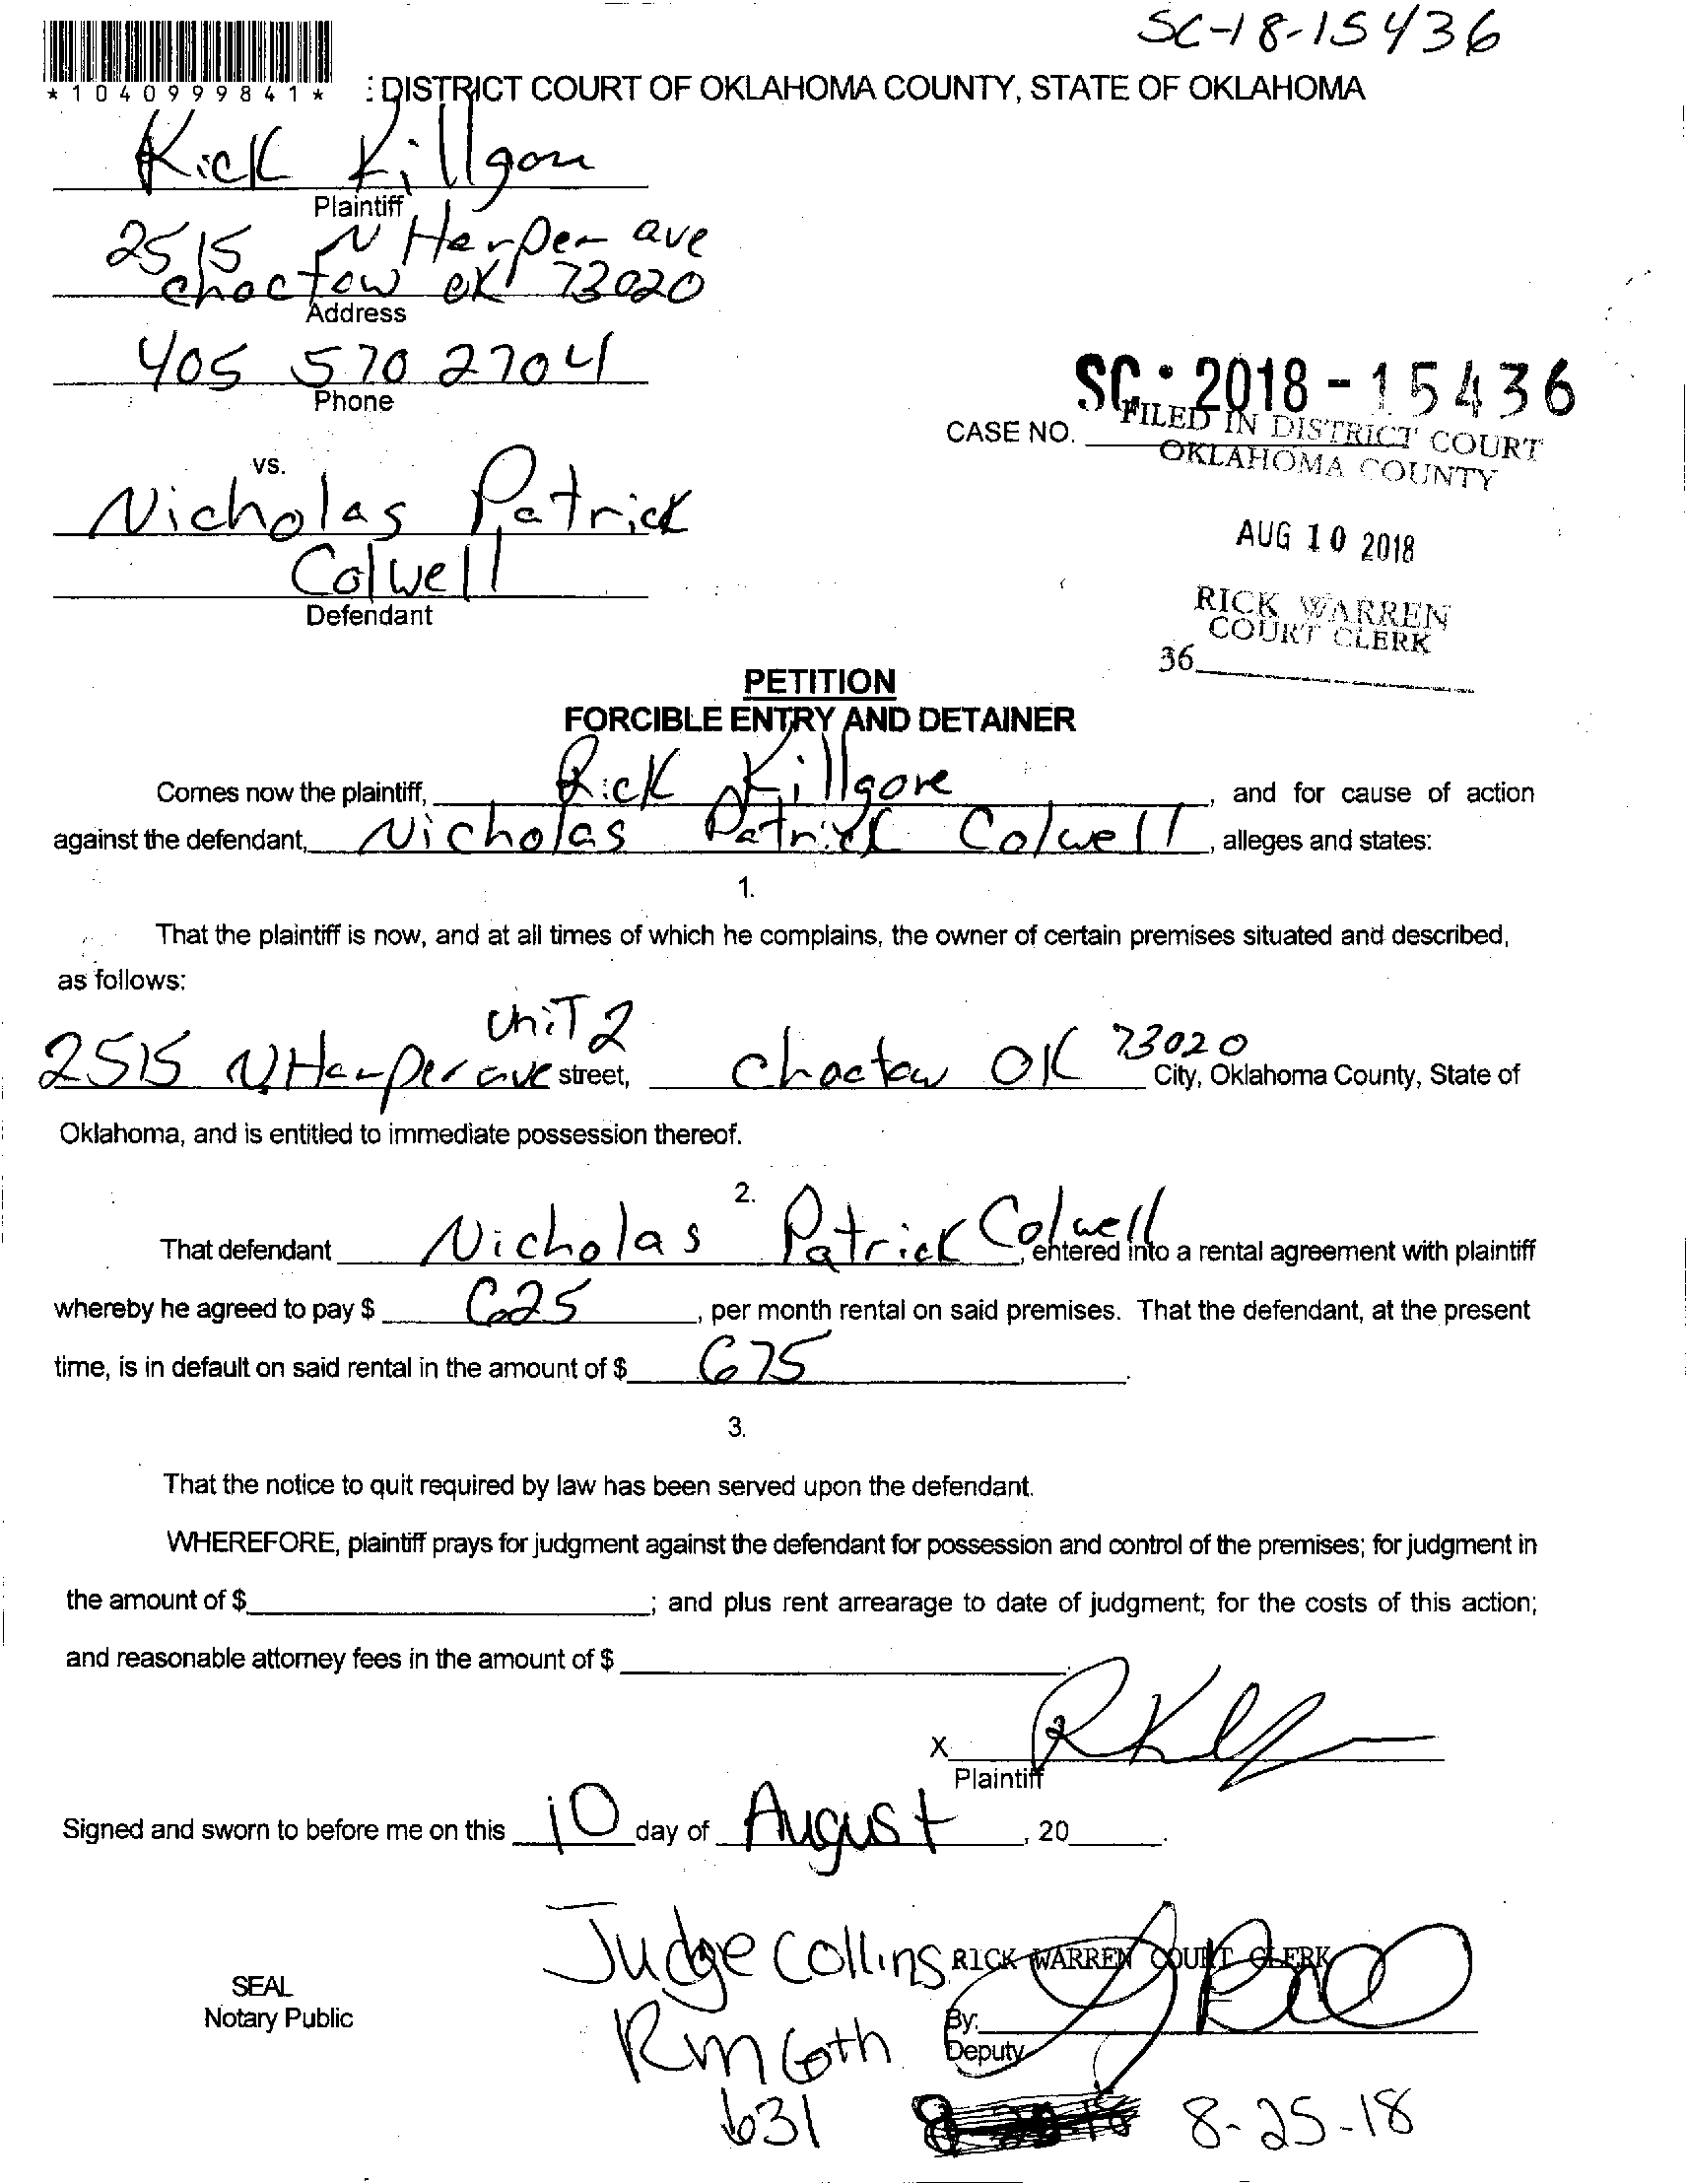 SC-18-15436
*1040999841*
: DISTRICT COURT OF OKLAHOMA COUNTY, STATE OF OKLAHOMA
Rick Killgore
Plaintiff
2515 N Harper ave
choctaw OK 73020
Address
405 570 2704
Phone
SC · 2018 - 15436
CASE NO.
FILED IN DISTRICT COURT
OKLAHOMA COUNTY
AUG 10 2018
RICK WARREN
COURT CLERK
36
vs.
Nicholas Patrick
Colwell
Defendant
PETITION
FORCIBLE ENTRY AND DETAINER
Comes now the plaintiff, Rick Killgore, and for cause of action
against the defendant, Nicholas Patrick Colwell, alleges and states:
1.
That the plaintiff is now, and at all times of which he complains, the owner of certain premises situated and described,
as follows:
uniT 2
2515 N Harper ave street, choctaw OK 73020 City, Oklahoma County, State of
Oklahoma, and is entitled to immediate possession thereof.
2.
That defendant Nicholas Patrick Colwell, entered into a rental agreement with plaintiff
whereby he agreed to pay $ 625, per month rental on said premises. That the defendant, at the present
time, is in default on said rental in the amount of $ 675.
3.
That the notice to quit required by law has been served upon the defendant.
WHEREFORE, plaintiff prays for judgment against the defendant for possession and control of the premises; for judgment in
the amount of $ ; and plus rent arrearage to date of judgment; for the costs of this action;
and reasonable attorney fees in the amount of $ .
X
Plaintiff
Signed and sworn to before me on this 10 day of August, 20 .
Judge Collins
RICK WARREN COURT CLERK
SEAL
Notary Public
Rm 6th
631
By:
Deputy
8-25-18